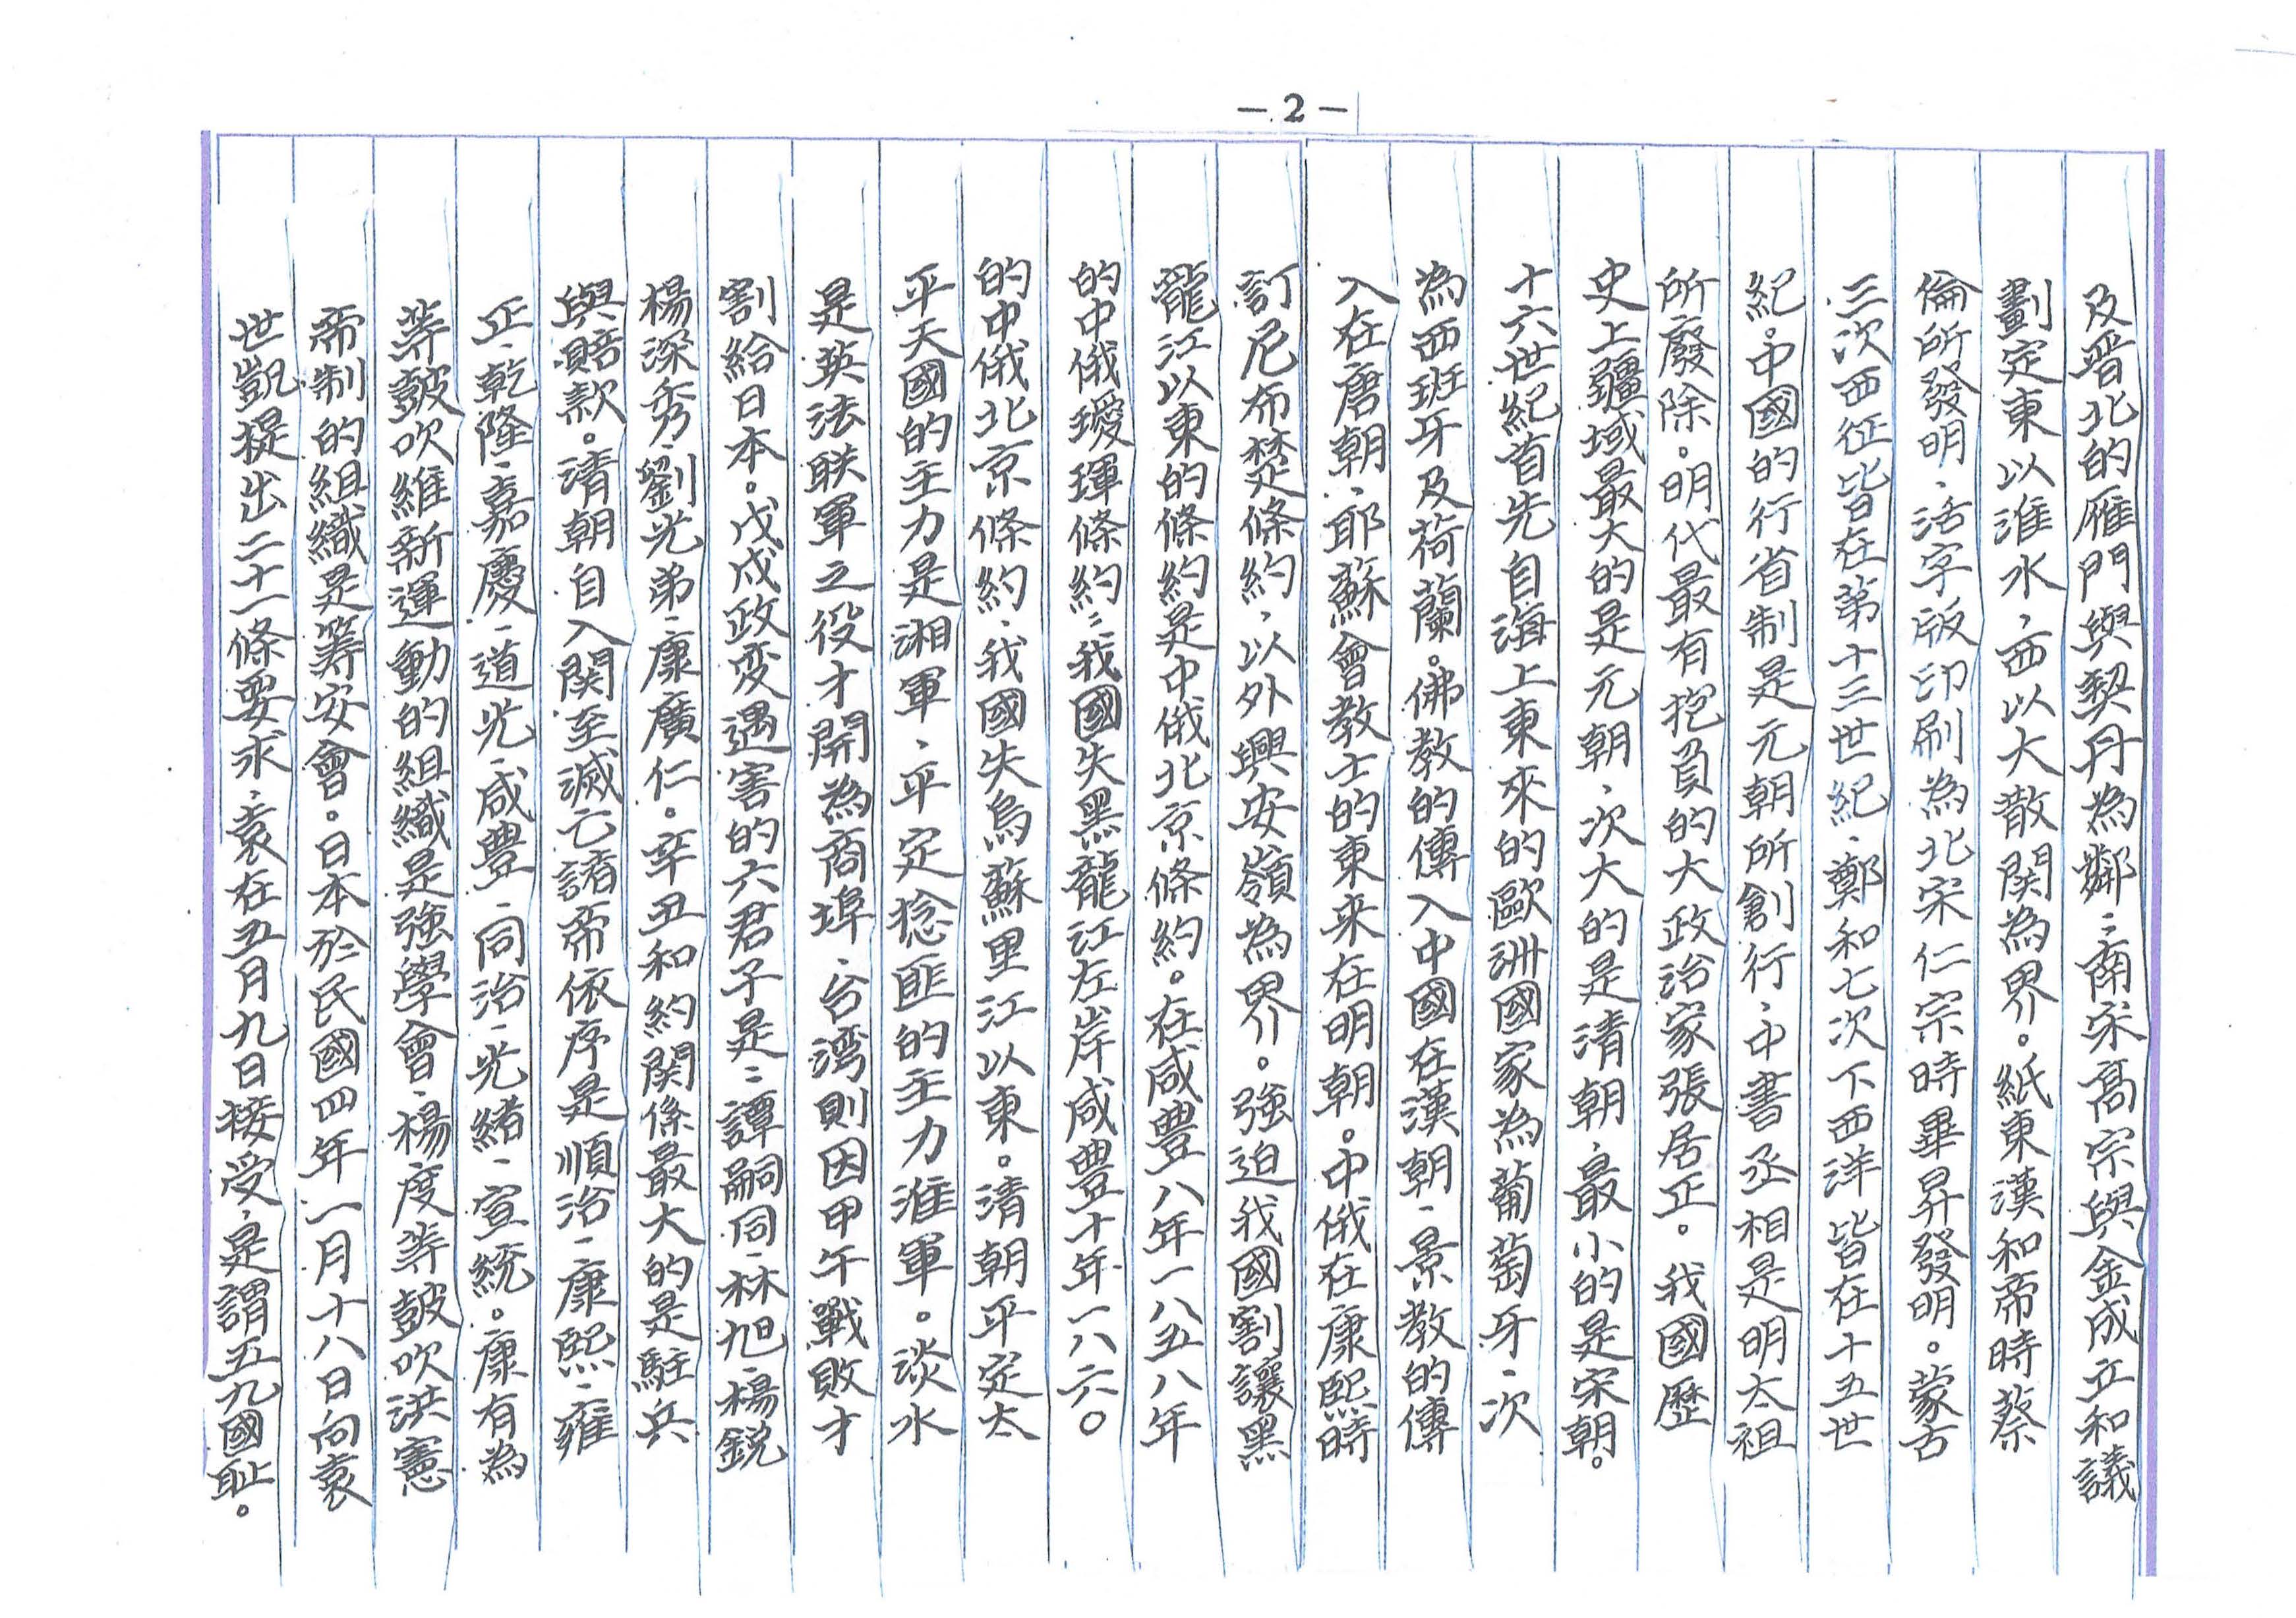 -2-
及晋北的雁門與契丹為鄰；南宋高宗與金成立和議
劃定東以淮水，西以大散関為界。紙東漢和帝時蔡
倫所發明，活字版印刷為北宋仁宗時畢昇發明。蒙古
三次西征皆在第十三世紀，鄭和七次下西洋皆在十五世
紀。中國的行省制是元朝所創行，中書丞相是明太祖
所廢除。明代最有抱負的大政治家張居正。我國歷
史上疆域最大的是元朝，次大的是清朝，最小的是宋朝。
十六世紀首先自海上東來的歐洲國家為葡萄牙，次
為西班牙及荷蘭。佛教的傳入中國在漢朝，景教的傳
入在唐朝，耶蘇會教士的東来在明朝。中俄在康熙時
訂尼布楚條約，以外興安嶺為界。強迫我國割讓黑
龍江以東的條約是中俄北京條約。在咸豊八年一八五八年
的中俄璦琿條約；我國失黑龍江左岸咸豊十年一八六〇
的中俄北京條約，我國失烏蘇里江以東。清朝平定太
平天國的主力是湘軍，平定捻匪的主力淮軍。淡水
是英法联軍之役才開為商埠，台湾則因甲午戰敗才
割給日本。戊戌政変遇害的六君子是：譚嗣同、林旭、楊銳
楊深秀、劉光弟、康廣仁。辛丑和約関係最大的是駐兵
與賠款。清朝自入関至滅亡諸帝依序是順治、康熙、雍
正、乾隆、嘉慶、道光、咸豊、同治、光緒、宣統。康有為
等鼓吹維新運動的組織是強學會，楊度等鼓吹洪憲
帝制的組織是籌安會。日本於民國四年一月十八日向袁
世凱提出二十一條要求，袁在五月九日接受，是謂五九國耻。